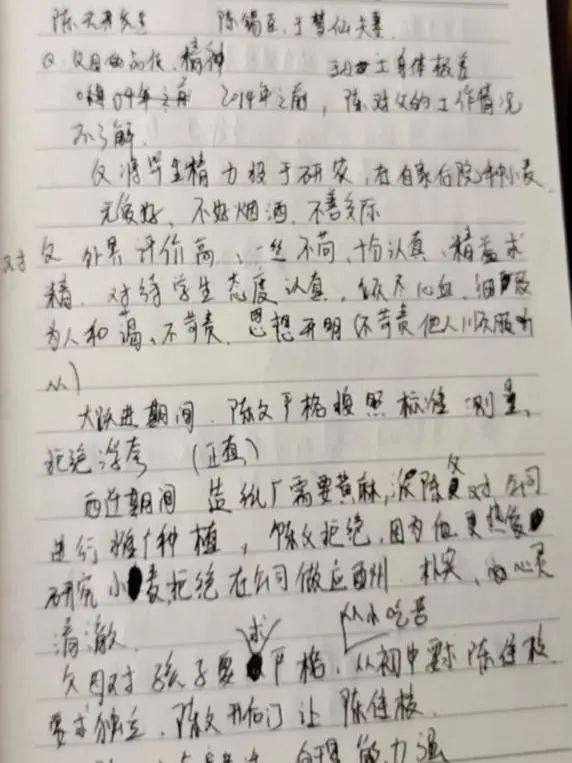 陈天 陈锡臣、于梦仙夫妻
① 父母的品德、精神 身体极差
09年之前 2014年之前，陈对父的工作情况
不了解.
父将毕生精力投于研农，在自家后院种小麦.
无爱好、不好烟酒、不善交际
对 父 外界评价高，一丝不苟，十分认真、精益求
精. 对待学生态度认真，倾尽心血，细
为人和蔼、不苛责. 思想开明（不苛责他人
从）
大跃进期间，陈父严格按照标准测量，
拒绝浮夸 （正直）
西迁期间 造纸厂需要黄麻，派陈父对公司
进行推广种植，陈父拒绝，因为他更热爱
研究小麦，拒绝在公司做应酬. 朴实，内心灵
清澈. 求 从小吃苦
父母对孩子要严格，从初中要求陈住校.
要求独立，陈父开后门让陈住校.
自理能力强